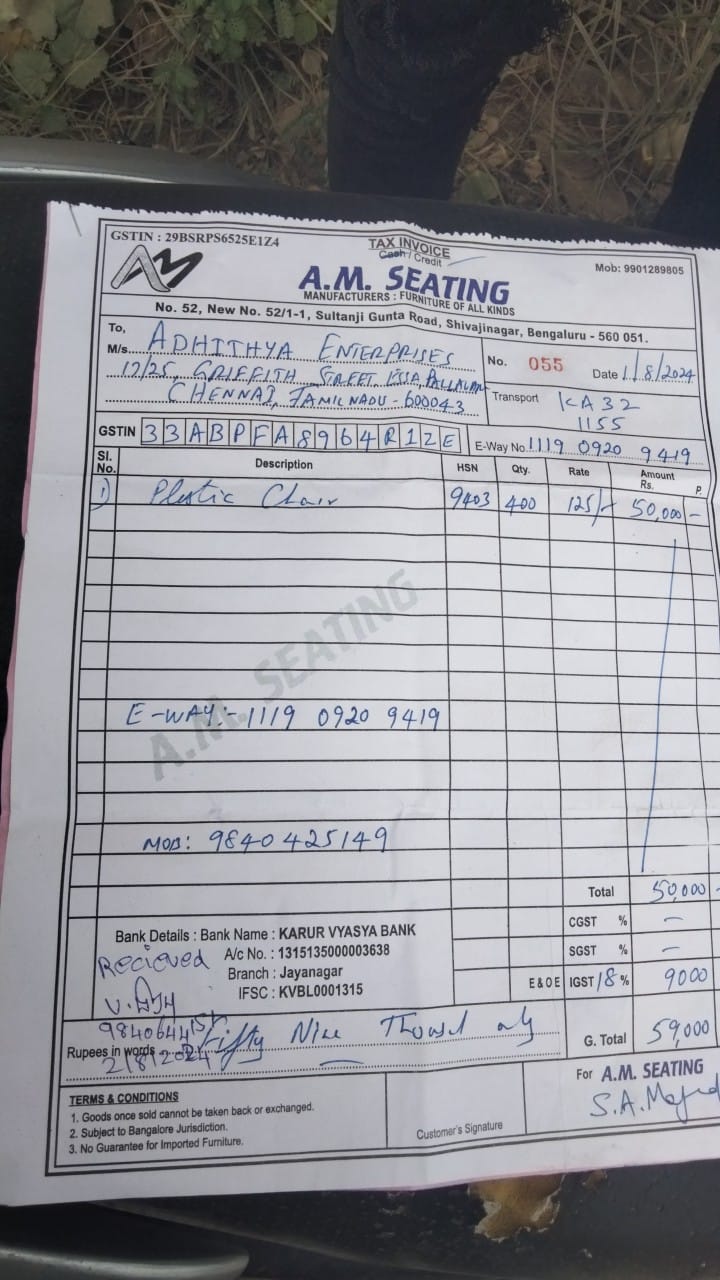 GSTIN : 29BSRPS6525E1Z4
TAX INVOICE
Cash / Credit
Mob: 9901289805
AM
A.M. SEATING
MANUFACTURERS : FURNITURE OF ALL KINDS
No. 52, New No. 52/1-1, Sultanji Gunta Road, Shivajinagar, Bengaluru - 560 051.
To,
M/s. ADHITHYA ENTERPRISES
17/25, GRIFFITH STREET,
CHENNAI, TAMILNADU - 600043
No. 055
Date 1/8/2024
Transport KA32
1155
GSTIN 33ABPFA8964R1ZE
E-Way No. 1119 0920 9419
Sl. No. Description HSN Qty. Rate Amount Rs. P.
1) Plastic Chair 9403 400 125/- 50,000 -
A.M. SEATING
E-WAY:- 1119 0920 9419
MOB: 9840425149
Total 50,000 -
CGST % -
SGST % -
E & O E IGST 18 % 9000
G. Total 59,000
Bank Details : Bank Name : KARUR VYASYA BANK
A/c No. : 1315135000003638
Branch : Jayanagar
IFSC : KVBL0001315
Recieved
2/8/2024
Rupees in words Fifty Nine Thousand only
For A.M. SEATING
TERMS & CONDITIONS
1. Goods once sold cannot be taken back or exchanged.
2. Subject to Bangalore Jurisdiction.
3. No Guarantee for Imported Furniture.
Customer's Signature